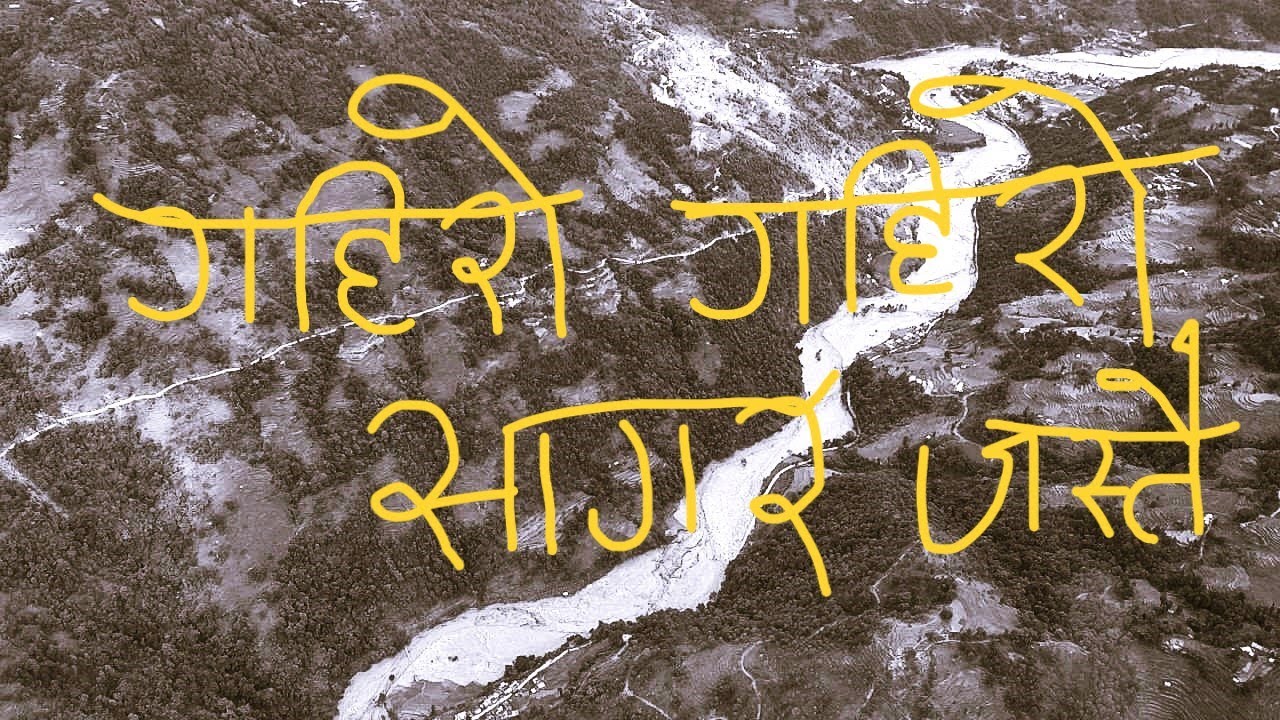 गहिरो गहिरो
सागर जस्तै